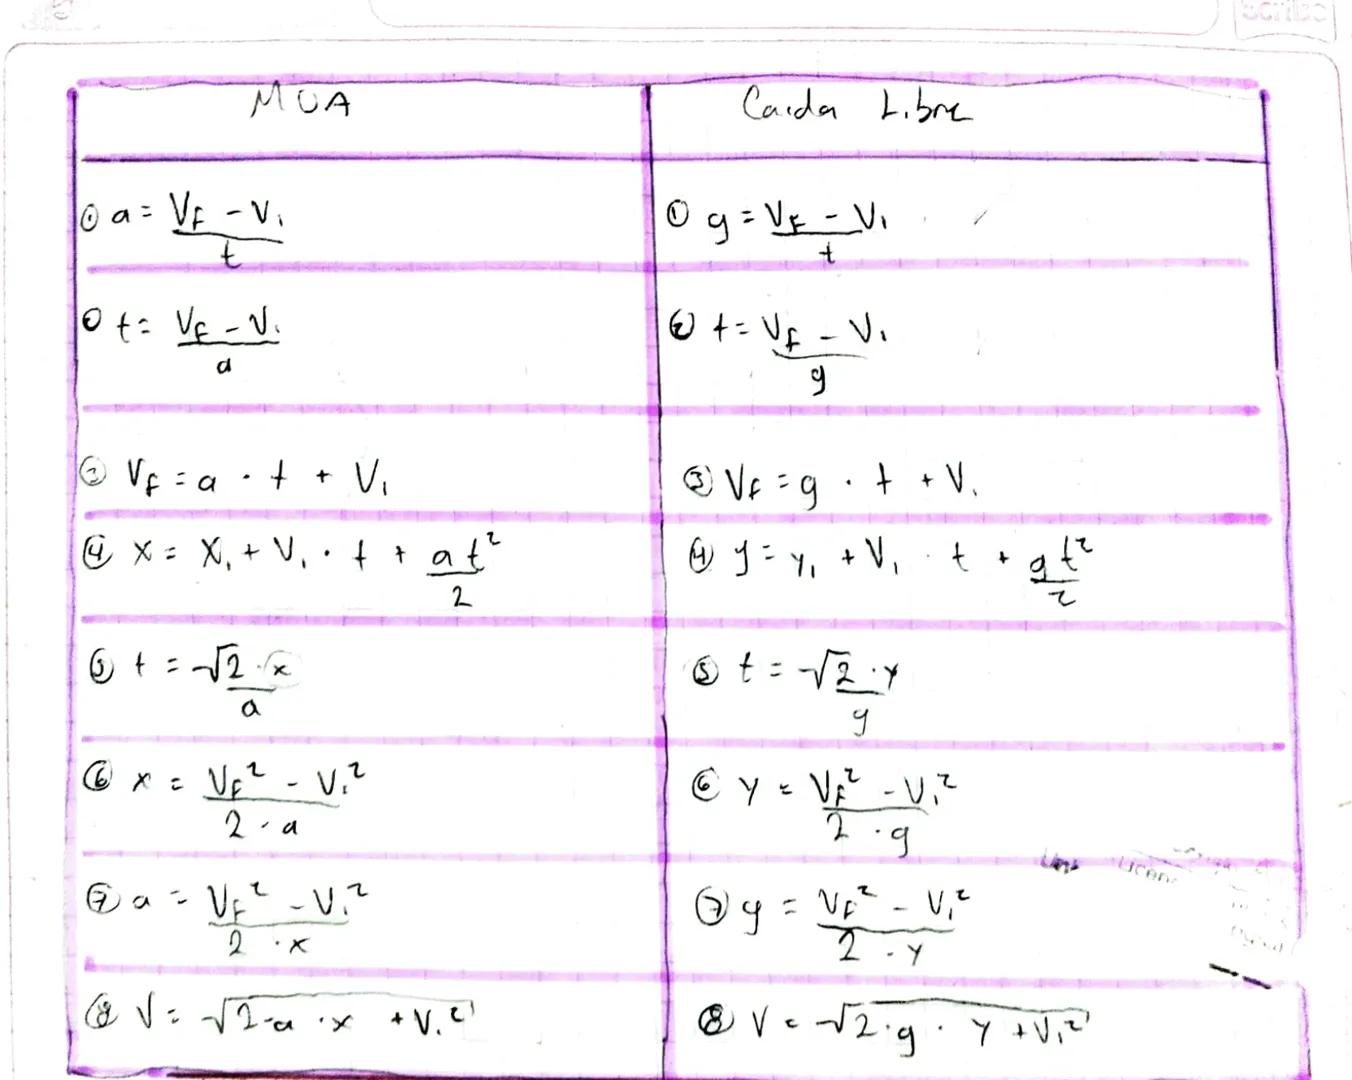 Scribe
MUA Caida Libre
① a = (V_F - V_1)/t ① g = (V_F - V_1)/t
② t = (V_F - V_1)/a ② t = (V_F - V_1)/g
③ V_F = a · t + V_1 ③ V_F = g · t + V_1
④ x = X_1 + V_1 · t + at²/2 ④ y = y_1 + V_1 · t + gt²/2
⑤ t = √2 · x/a ⑤ t = √2 · y/g
⑥ x = (V_F² - V_1²)/(2 · a) ⑥ y = (V_F² - V_1²)/(2 · g)
⑦ a = (V_F² - V_1²)/(2 · x) ⑦ g = (V_F² - V_1²)/(2 · y)
⑧ V = √(2 · a · x + V_1²) ⑧ V = √(2 · g · y + V_1²)